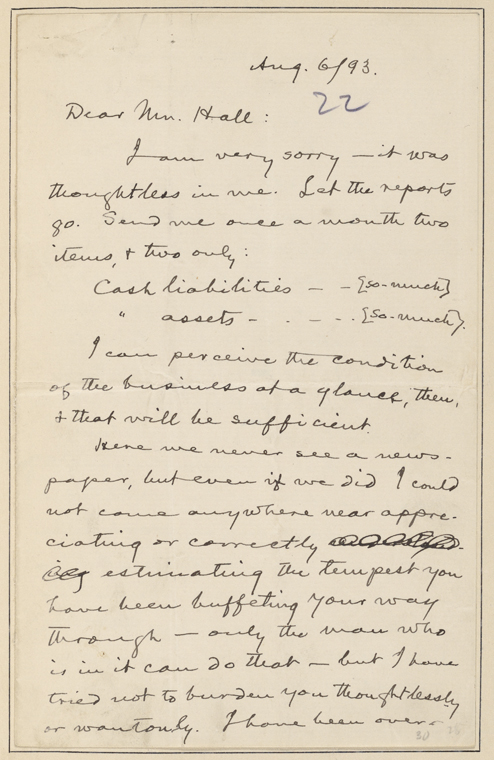 Aug. 6/93.
22
Dear Mr. Hall:
I am very sorry — it was
thoughtless in me. Let the reports
go. Send me once a month two
items, & two only:
Cash liabilities — — {so-much}
" assets - . - - . {so-much}.
I can perceive the condition
of the business at a glance, then,
& that will be sufficient.
Here we never see a news-
paper, but even if we did I could
not come anywhere near appre-
ciating or correctly
estimating the tempest you
have been buffeting your way
through — only the man who
is in it can do that — but I have
tried not to burden you thoughtlessly
or wantonly. I have been over-
30